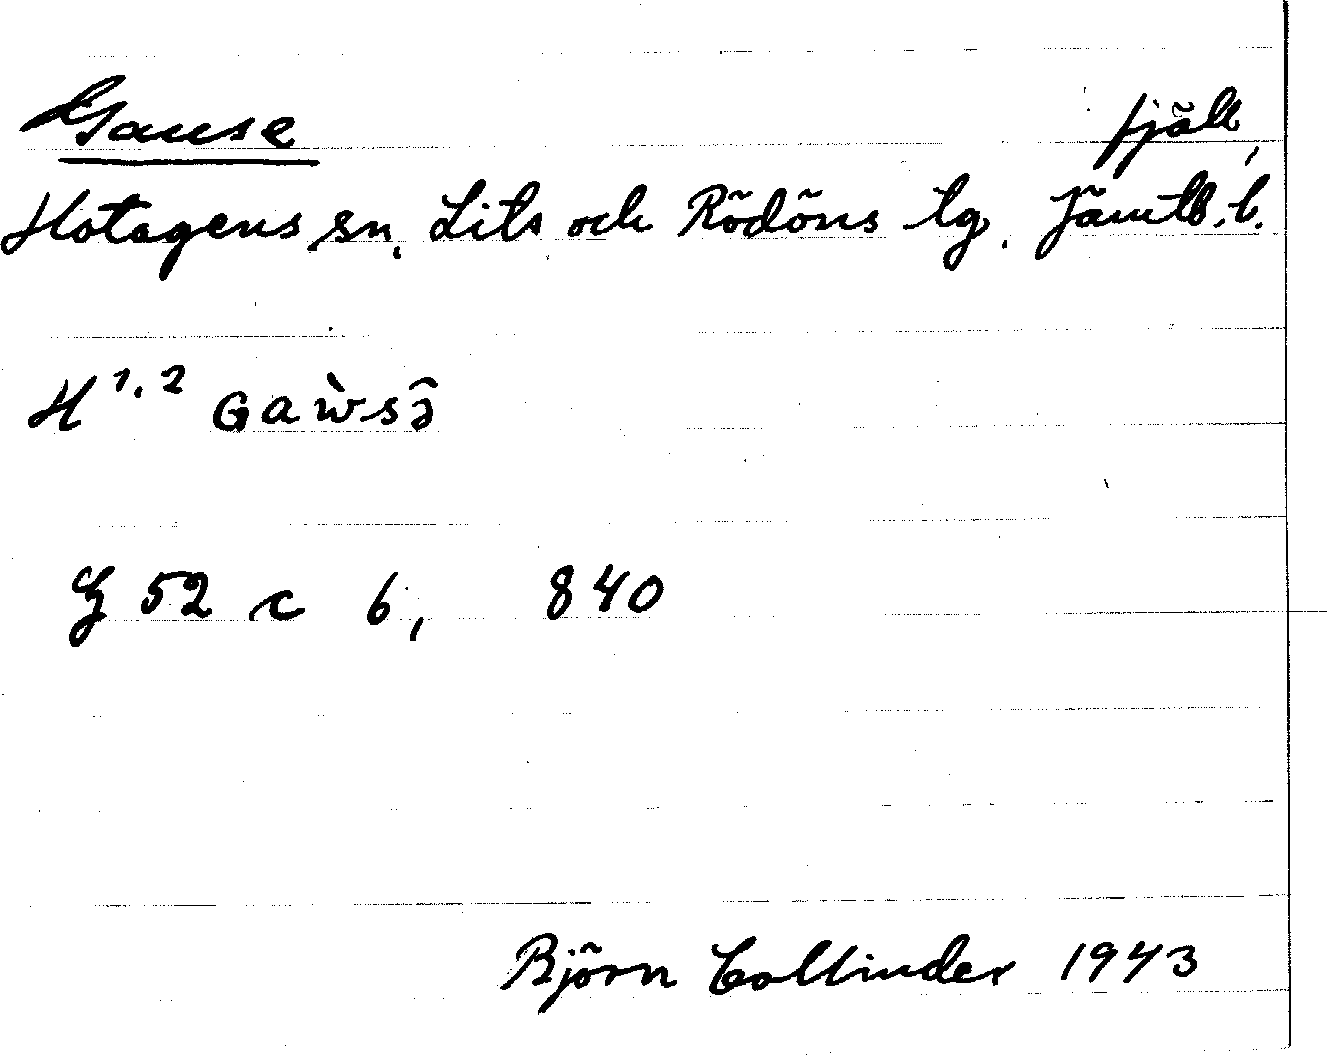 Gause fjäll,
Hotagens sn, Lits och Rödöns tg. Jämtl. l.
H 1, 2 Gaẁsə̑
G 52 c 6, 840
Björn Collinder 1943